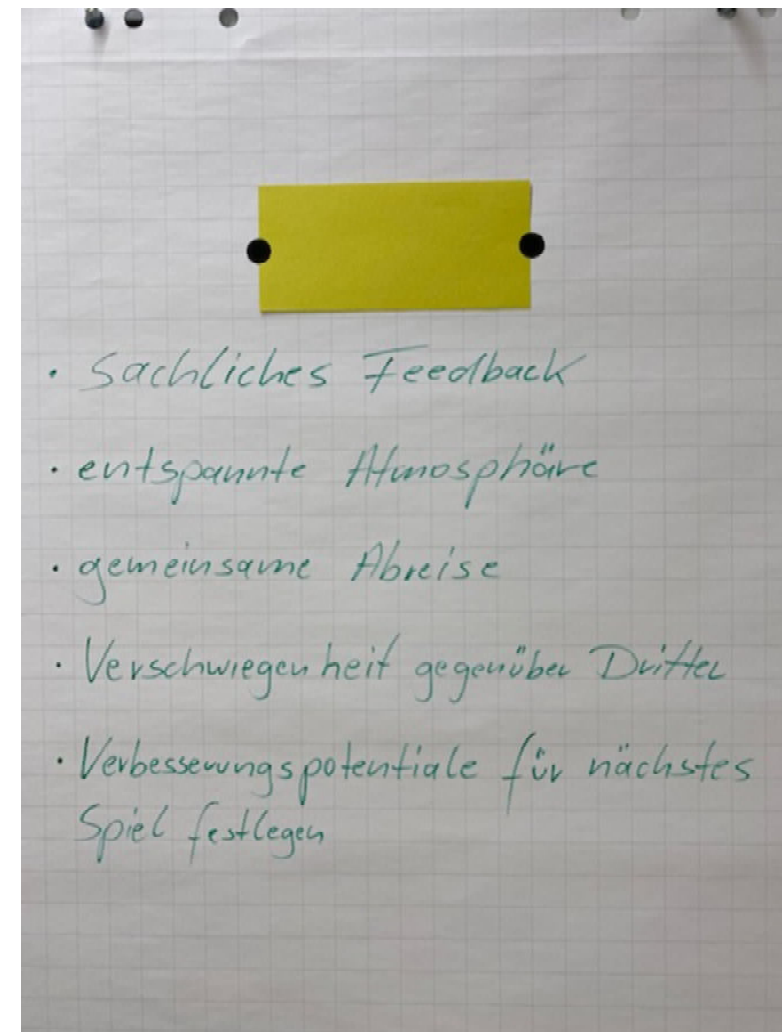 · Sachliches Feedback
· entspannte Atmosphäre
· gemeinsame Abreise
· Verschwiegenheit gegenüber Dritter
· Verbesserungspotentiale für nächstes
Spiel festlegen